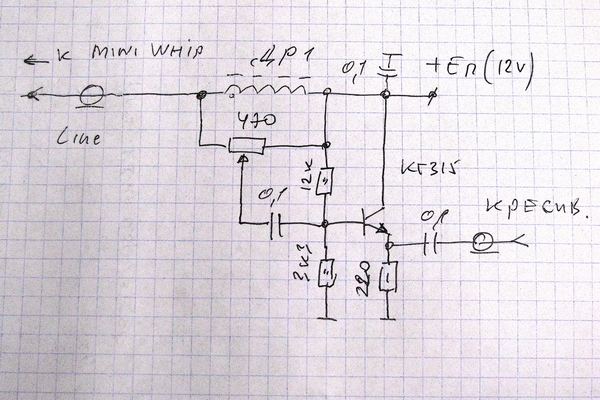 ← к MINI WHIP
ДР1
0,1
+Eп(12v)
Line
470
12к
КТ315
0,1
0,1
К РЕСИВ.
3к3
220